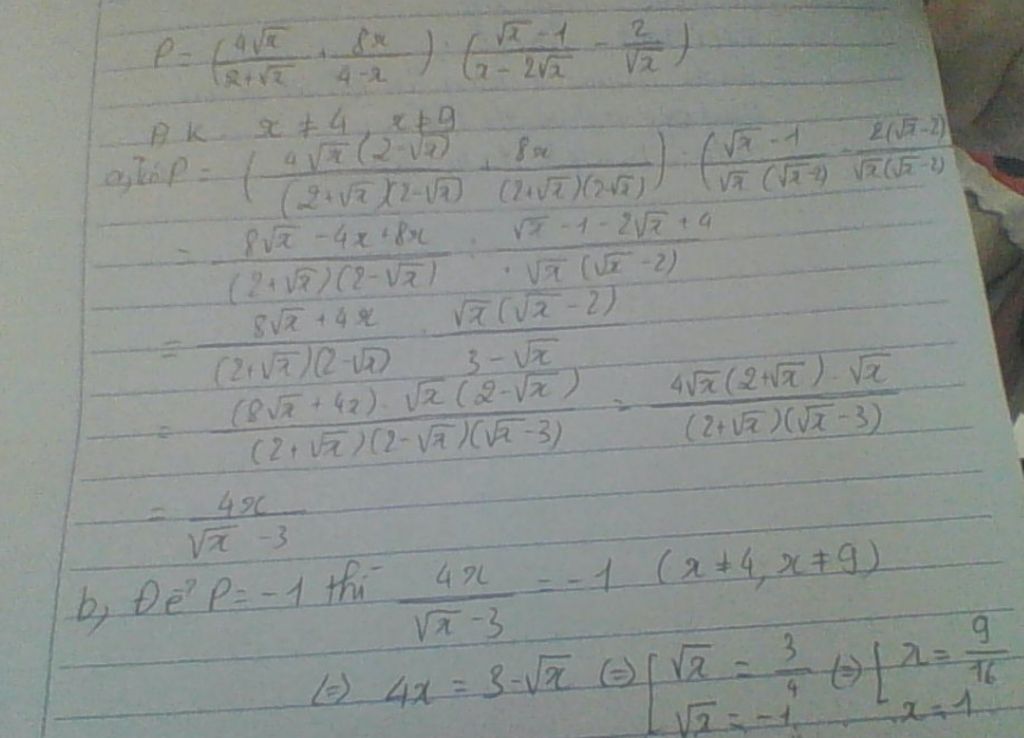 P = (4√x/(2+√x) + 8x/(4-x)) : ((√x - 1)/(x - 2√x) - 2/√x)
ĐK x ≠ 4, x ≠ 9
a, P = (4√x(2-√x)/((2+√x)(2-√x)) + 8x/((2+√x)(2-√x))) : ((√x - 1)/(√x(√x-2)) - 2(√x-2)/(√x(√x-2)))
= (8√x - 4x + 8x)/((2+√x)(2-√x)) : (√x - 1 - 2√x + 4)/(√x(√x-2))
= (8√x + 4x)/((2+√x)(2-√x)) . √x(√x - 2)/(3 - √x)
= (8√x + 4x) . √x(2-√x)/((2+√x)(2-√x)(√x-3)) = 4√x(2+√x) . √x/((2+√x)(√x-3))
= 4x/(√x - 3)
b, Để P = -1 thì 4x/(√x - 3) = -1 (x ≠ 4, x ≠ 9)
(=) 4x = 3 - √x (=) [ √x = 3/4 (=) [ x = 9/16
√x = -1 x = 1